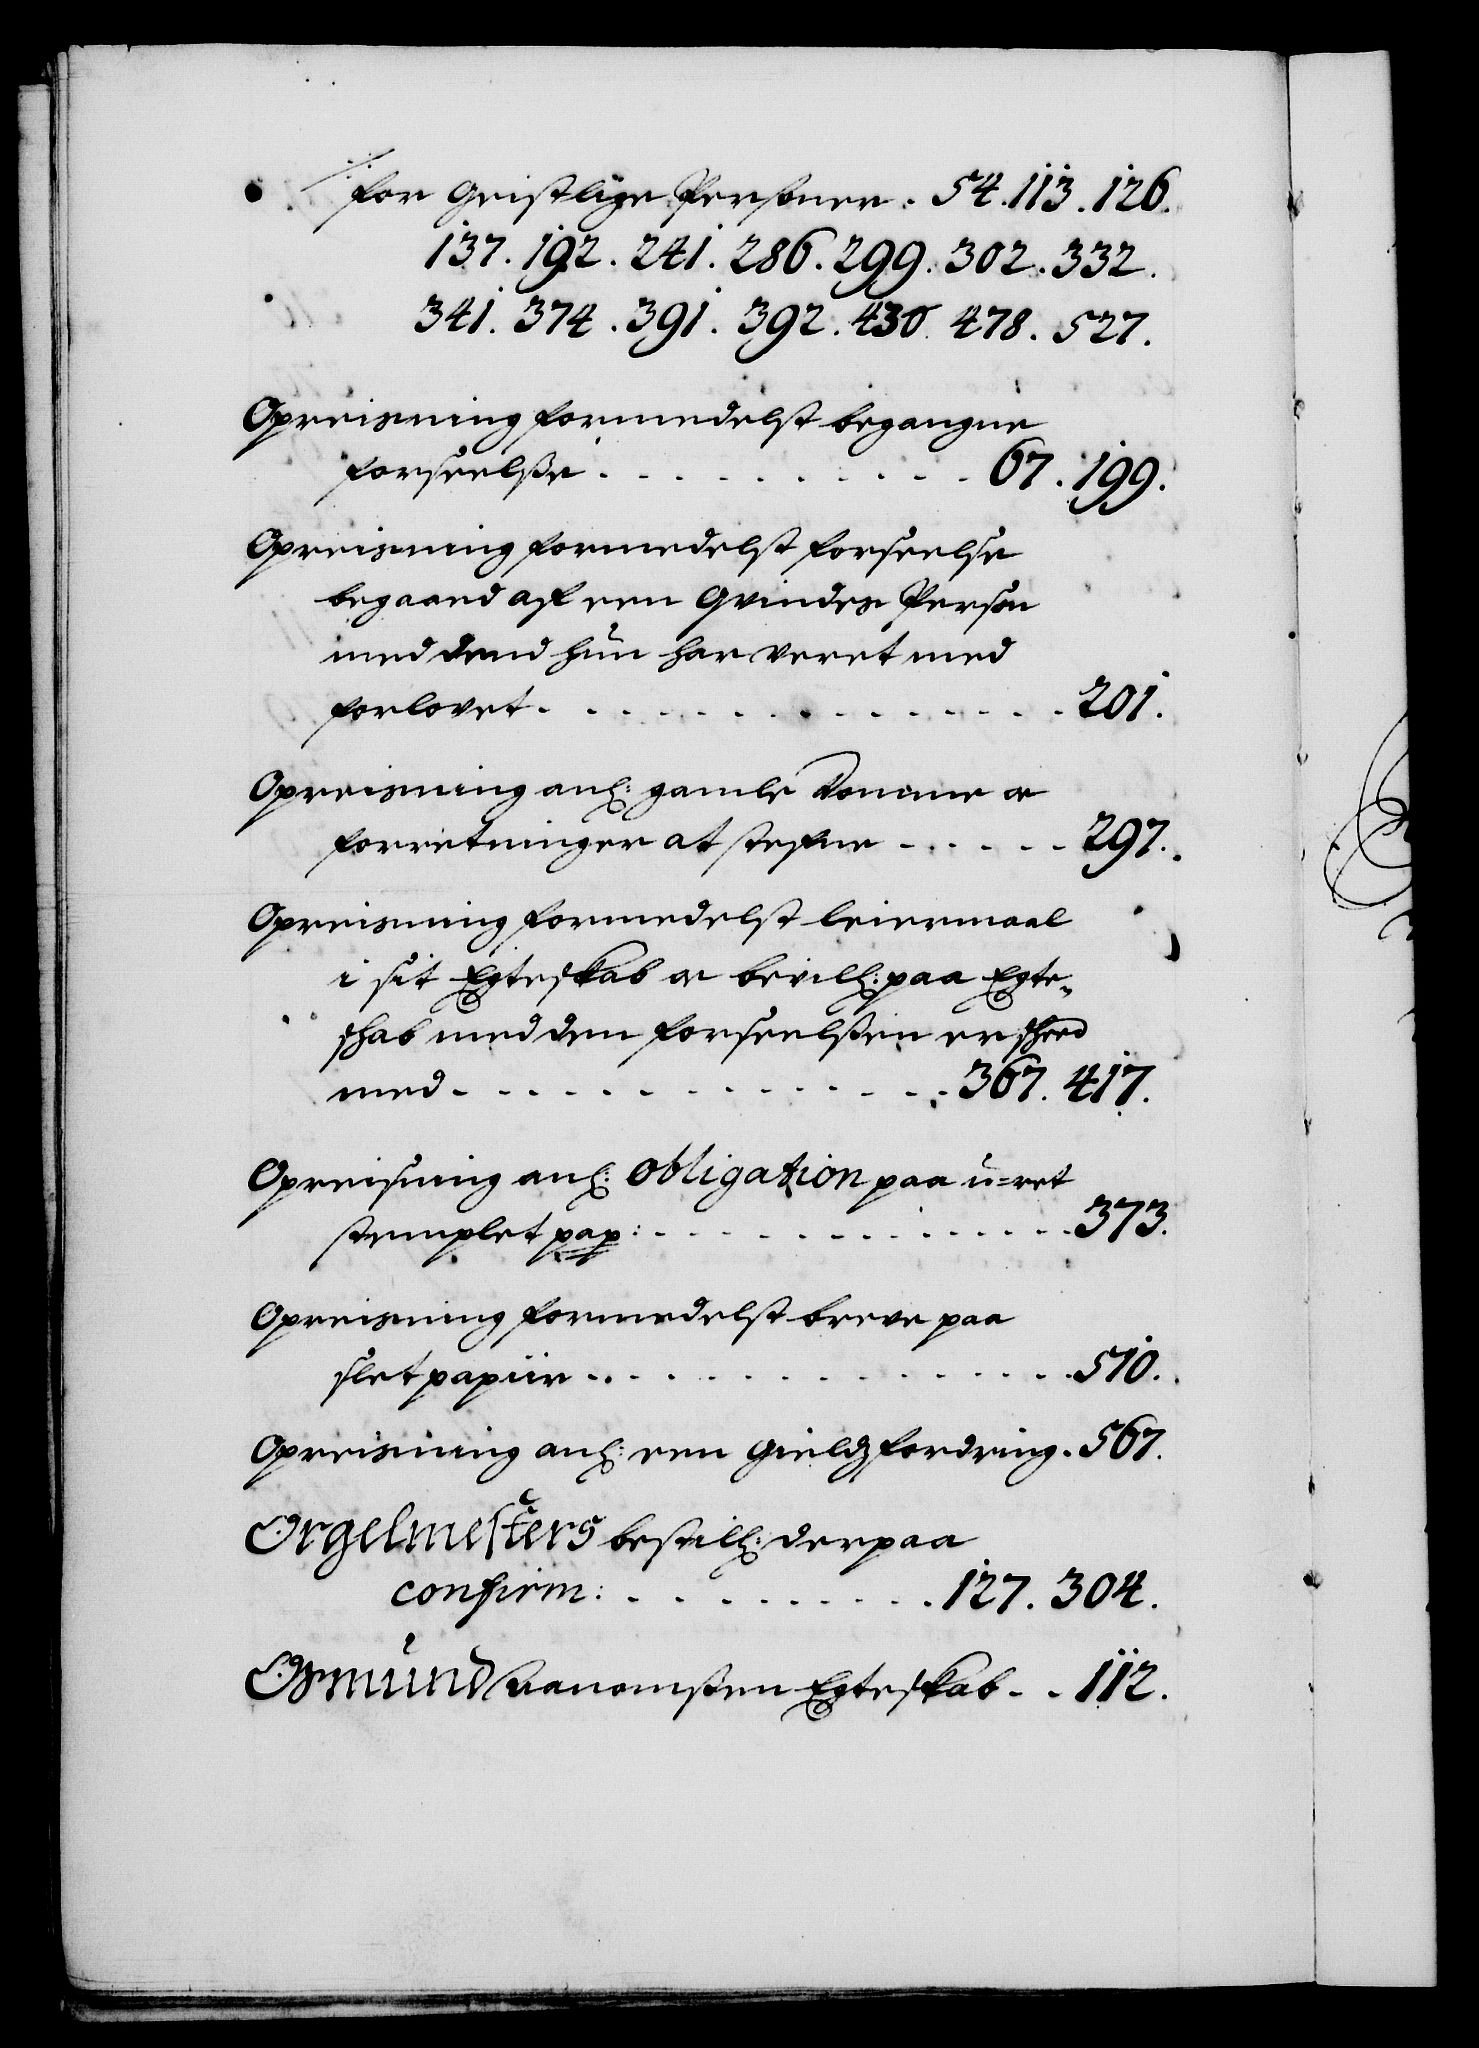 for Geistlige Persohner. 54. 113. 126.
137. 192. 241. 286. 299. 302. 332.
341. 374. 391. 392. 430. 478. 527.
Opreisning formedelst begangne
forseelße . . . . . . . . . 67. 199.
Opreisning formedelst forseelse
begaaed af een Qvindes Person
med dend hun har veret med
forlovet . . . . . . . . . . . 201.
Opreisning anl: gamle Domme oc
forretninger at stefne . . . . . 297.
Opreisning formedelst leiermaal
i sit Egteskab oc bevill: paa Egte-
skab med den forseelßen er skeed
med . . . . . . . . . . . 367. 417.
Opreisning anl: Obligation paa u=ret
stemplet pap: . . . . . . . . . . 373.
Opreisning formedelst breve paa
slet papiir . . . . . . . . . . . 510.
Opreisning anl: een Gieldsfordring. 567.
Orgelmesters bestill: derpaa
confirm: . . . . . . . . 127. 304.
Osmund Egteskab . . 112.